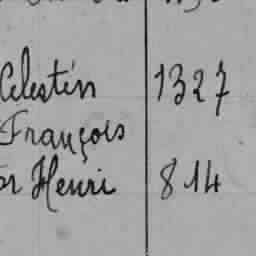 Celestin 1327
François
Henri 814